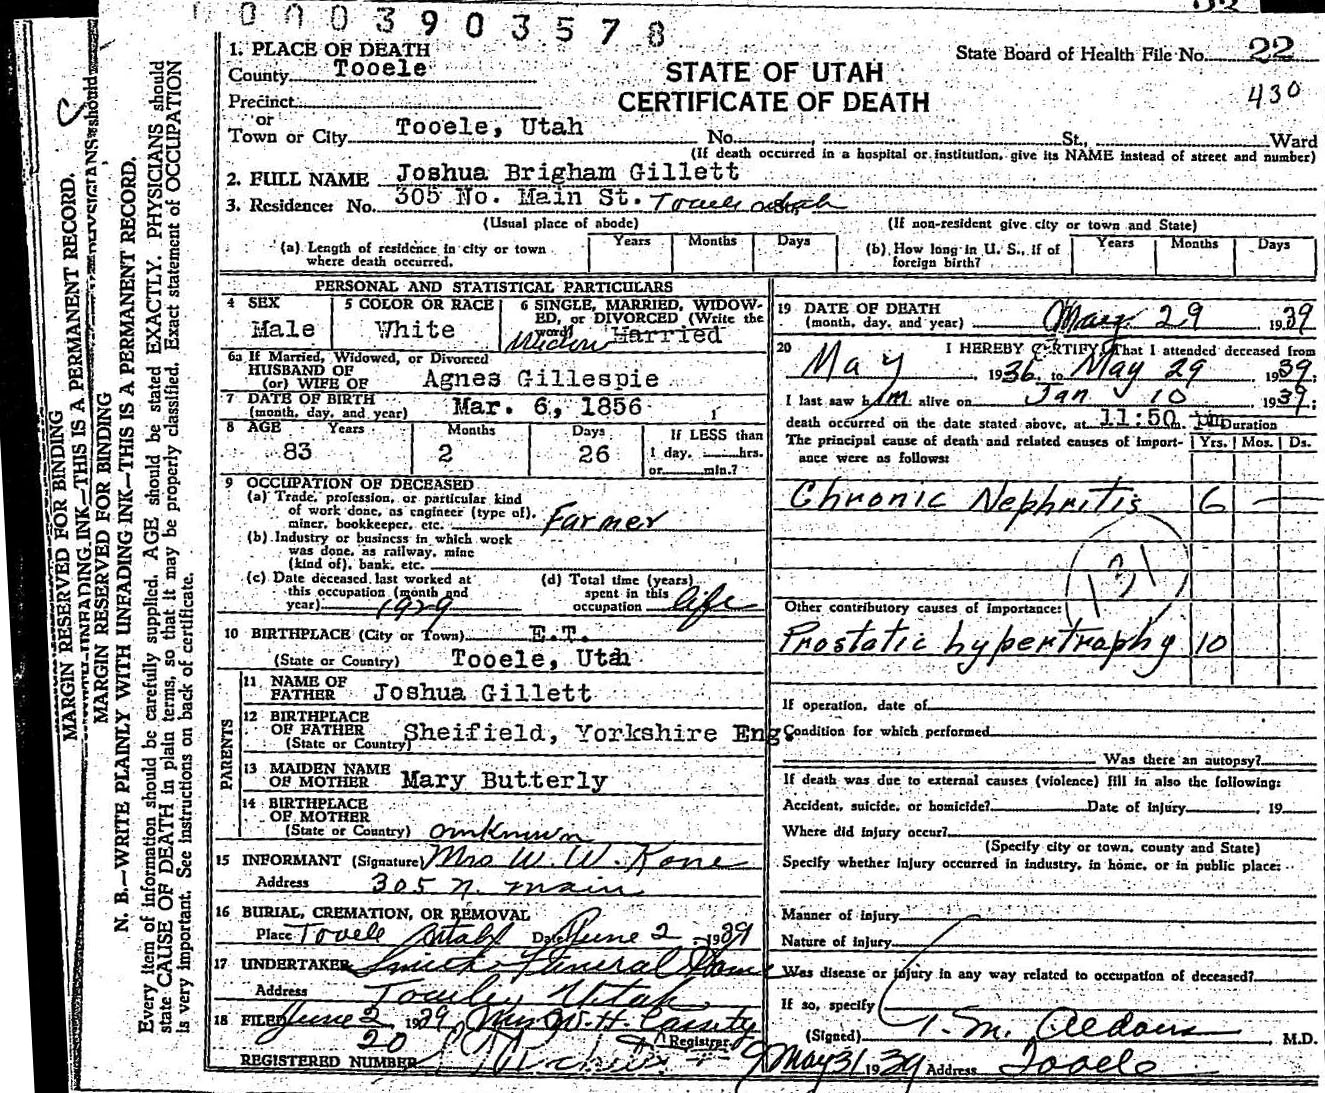 0003903578
1. PLACE OF DEATH
County Tooele
Precinct
or
Town or City Tooele, Utah No. St., Ward
(If death occurred in a hospital or institution, give its NAME instead of street and number)
State Board of Health File No. 22
430
STATE OF UTAH
CERTIFICATE OF DEATH
2. FULL NAME Joshua Brigham Gillett
3. Residence: No. 305 No. Main St. Tooele Utah
(Usual place of abode) (If non-resident give city or town and State)
(a) Length of residence in city or town where death occurred. Years Months Days
(b) How long in U. S., if of foreign birth? Years Months Days
PERSONAL AND STATISTICAL PARTICULARS
4 SEX Male
5 COLOR OR RACE White
6 SINGLE, MARRIED, WIDOW-
ED, or DIVORCED (Write the
word) Widow Married
6a If Married, Widowed, or Divorced
HUSBAND OF
(or) WIFE OF Agnes Gillespie
7 DATE OF BIRTH
(month, day, and year) Mar. 6, 1856
8 AGE Years Months Days If LESS than
83 2 26 1 day, hrs.
or min.?
9 OCCUPATION OF DECEASED
(a) Trade, profession, or particular kind
of work done, as engineer (type of),
miner, bookkeeper, etc. Farmer
(b) Industry or business in which work
was done, as railway, mine
(kind of), bank, etc.
(c) Date deceased last worked at
this occupation (month and
year) 1929
(d) Total time (years)
spent in this
occupation life
10 BIRTHPLACE (City or Town) E.T.
(State or Country) Tooele, Utah
PARENTS
11 NAME OF
FATHER Joshua Gillett
12 BIRTHPLACE
OF FATHER
(State or Country) Sheifield, Yorkshire Eng
13 MAIDEN NAME
OF MOTHER Mary Butterly
14 BIRTHPLACE
OF MOTHER
(State or Country) unknown
15 INFORMANT (Signature) Mrs W. W. Kone
Address 305 N. main
16 BURIAL, CREMATION, OR REMOVAL
Place Tooele Utah Date June 2, 1939
17 UNDERTAKER Funeral Home
Address Tooele, Utah
18 FILED June 2 1939 Registrar
20
REGISTERED NUMBER
19 DATE OF DEATH
(month, day, and year) May 29 1939
20 I HEREBY CERTIFY, That I attended deceased from
May, 1936 to May 29 1939
I last saw him alive on Jan 10 1939;
death occurred on the date stated above, at 11:50 m. pm Duration
The principal cause of death and related causes of import- Yrs. Mos. Ds.
ance were as follows:
Chronic Nephritis 6
131
Other contributory causes of importance:
Prostatic hypertraphy 10
If operation, date of
Condition for which performed
Was there an autopsy?
If death was due to external causes (violence) fill in also the following:
Accident, suicide, or homicide? Date of injury , 19
Where did injury occur?
(Specify city or town, county and State)
Specify whether injury occurred in industry, in home, or in public place:
Manner of injury
Nature of injury
Was disease or injury in any way related to occupation of deceased?
If so, specify
(Signed) T. M. M.D.
May 31 1939 Address Tooele
MARGIN RESERVED FOR BINDING
UNFADING INK—THIS IS A PERMANENT RECORD.
PHYSICIANS should
MARGIN RESERVED FOR BINDING
N. B.—WRITE PLAINLY WITH UNFADING INK—THIS IS A PERMANENT RECORD.
Every item of information should be carefully supplied. AGE should be stated EXACTLY. PHYSICIANS should
state CAUSE OF DEATH in plain terms, so that it may be properly classified. Exact statement of OCCUPATION
is very important. See instructions on back of certificate.